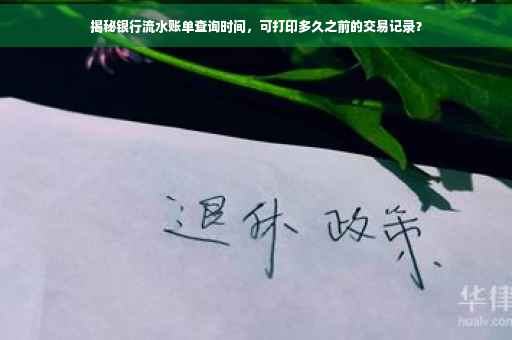 揭秘银行流水账单查询时间，可打印多久之前的交易记录？
退休 政策
华律
hualv.com